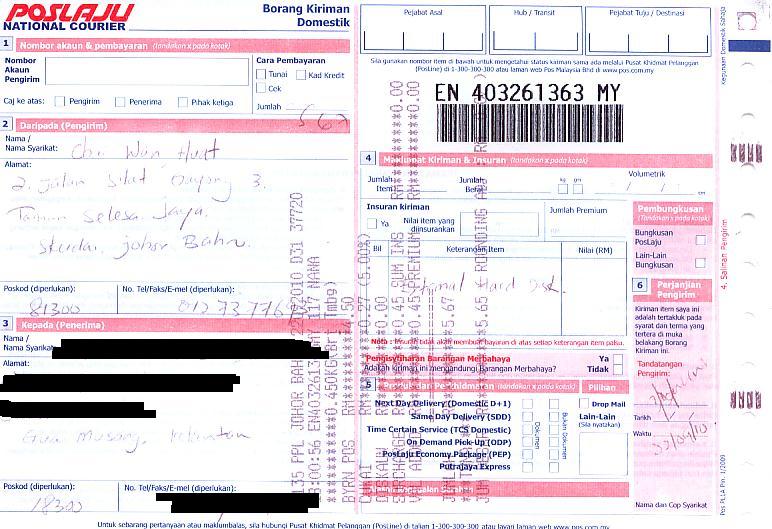 POSLAJU
NATIONAL COURIER
Borang Kiriman
Domestik
1 Nombor akaun & pembayaran (tandakan x pada kotak)
Nombor
Akaun
Pengirim
Cara Pembayaran
Tunai Kad Kredit
Cek
Caj ke atas: Pengirim Penerima Pihak ketiga
Jumlah 567
2 Daripada (Pengirim)
Nama /
Nama Syarikat:
Alamat:
2, Jalan Silat Gayong 3.
Taman Selesa Jaya.
Skudai, Johor Bahru.
Poskod (diperlukan): No. Tel/Faks/E-mel (diperlukan):
81300
3 Kepada (Penerima)
Nama /
Nama Syarikat:
Alamat:
Gua Musang, Kelantan
Poskod (diperlukan): No. Tel/Faks/E-mel (diperlukan):
18300
Pejabat Asal Hub / Transit Pejabat Tuju / Destinasi
Sila gunakan nombor item di bawah untuk mengetahui status kiriman sama ada melalui Pusat Khidmat Pelanggan
(PosLine) di 1-300-300-300 atau laman web Pos Malaysia Bhd di www.pos.com.my
EN 403261363 MY
4 Maklumat Kiriman & Insuran (tandakan x pada kotak)
Jumlah
Item
Jumlah
Berat
kg gm
Volumetrik
cm
Insuran kiriman
Ya
Nilai item yang
diinsurankan
Jumlah Premium
Bil Keterangan Item Nilai (RM)
Hard Disk
Nota : Insuran tidak akan membuat bayaran di atas setiap keterangan item palsu.
Pengisytiharan Barangan Merbahaya Ya
Adakah kiriman ini mengandungi Barangan Merbahaya? Tidak
5 Produk dan Perkhidmatan (tandakan x pada kotak) Pilihan
Next Day Delivery (Domestic D+1)
Same Day Delivery (SDD)
Time Certain Service (TCS Domestic)
On Demand Pick-Up (ODP)
PosLaju Economy Package (PEP)
Putrajaya Express
Dokumen
Bukan Dokumen
Drop Mail
Lain-Lain
(Sila nyatakan)
Pembungkusan
(Tandakan x pada kotak)
Bungkusan
PosLaju
Lain-Lain
Bungkusan
6 Perjanjian
Pengirim
Kiriman item saya ini
adalah tertakluk pada
syarat dan terma yang
tertera di muka
belakang Borang
Kiriman ini.
Tandatangan
Pengirim:
Tarikh
Waktu
Nama dan Cop Syarikat
Kegunaan Domestik Sahaja
4. Salinan Pengirim
Pos PL1A Pin. 1/2009
Untuk sebarang pertanyaan atau maklumbalas, sila hubungi Pusat Khidmat Pelanggan (PosLine) di talian 1-300-300-300 atau layari laman web www.pos.com.my